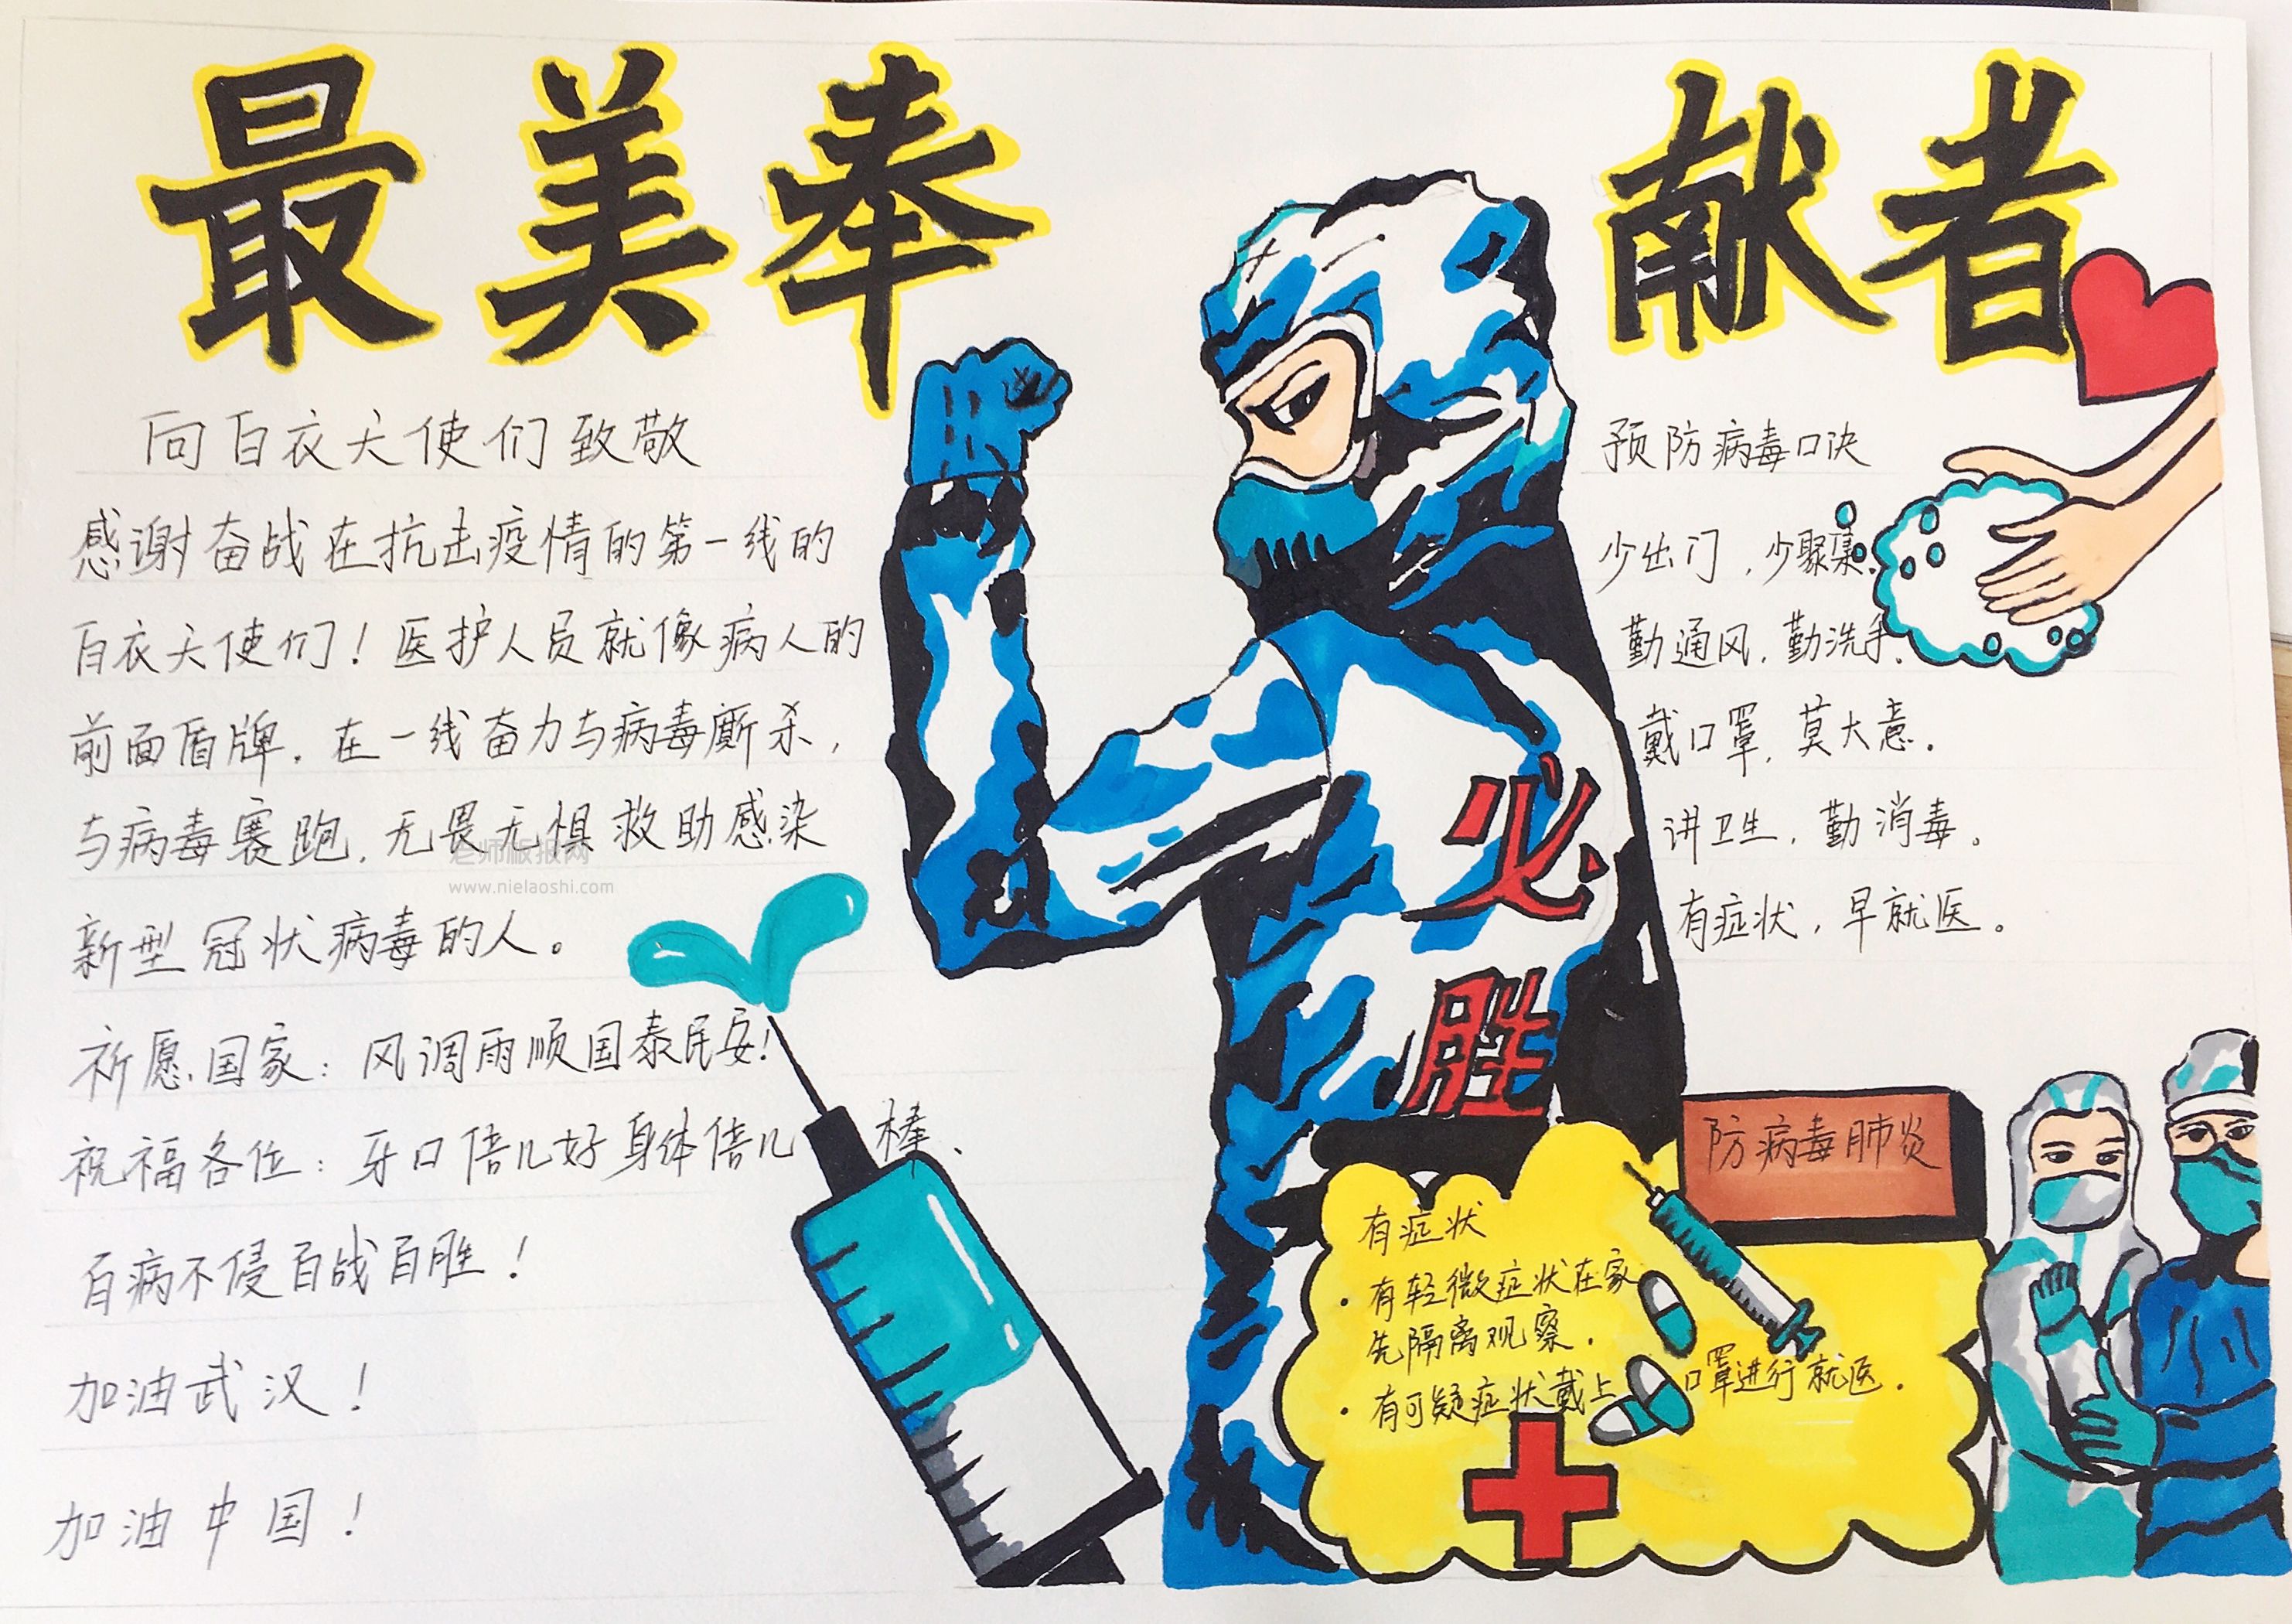 最美奉献者
向白衣天使们致敬
感谢奋战在抗击疫情的第一线的
白衣天使们！医护人员就像病人的
前面盾牌，在一线奋力与病毒厮杀，
与病毒赛跑，无畏无惧救助感染
新型冠状病毒的人。
祈愿国家：风调雨顺国泰民安！
祝福各位：牙口倍儿好身体倍儿棒、
百病不侵百战百胜！
加油武汉！
加油中国！
老师板报网
www.nielaoshi.com
必胜
预防病毒口诀
少出门，少聚集，
勤通风，勤洗手，
戴口罩，莫大意。
讲卫生，勤消毒。
有症状，早就医。
防病毒肺炎
有症状
·有轻微症状在家
先隔离观察。
·有可疑症状戴上口罩进行就医。